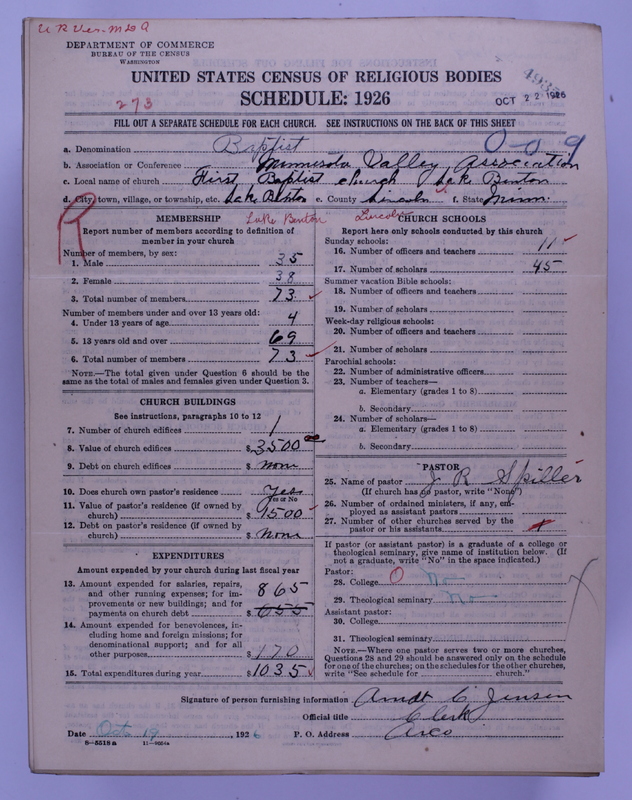 DEPARTMENT OF COMMERCE
BUREAU OF THE CENSUS
WASHINGTON
UNITED STATES CENSUS OF RELIGIOUS BODIES
SCHEDULE: 1926
273
OCT 22 1926
FILL OUT A SEPARATE SCHEDULE FOR EACH CHURCH. SEE INSTRUCTIONS ON THE BACK OF THIS SHEET
a. Denomination Baptist 0-0-9
b. Association or Conference Minnesota Valley Association
c. Local name of church First Baptist church Lake Benton
d. City, town, village, or township, etc. Lake Benton e. County Lincoln f. State Minn.
R
Lake Benton Lincoln
MEMBERSHIP
Report number of members according to definition of member in your church
Number of members, by sex:
1. Male 35
2. Female 38
3. Total number of members 73
Number of members under and over 13 years old:
4. Under 13 years of age 4
5. 13 years old and over 69
6. Total number of members 73
NOTE.—The total given under Question 6 should be the same as the total of males and females given under Question 3.
CHURCH BUILDINGS
See instructions, paragraphs 10 to 12
7. Number of church edifices 1
8. Value of church edifices $ 3500
9. Debt on church edifices $ none
10. Does church own pastor's residence Yes
Yes or No
11. Value of pastor's residence (if owned by church) $ 1500
12. Debt on pastor's residence (if owned by church) $ none
EXPENDITURES
Amount expended by your church during last fiscal year
13. Amount expended for salaries, repairs, and other running expenses; for improvements or new buildings; and for payments on church debt $ 865
655
14. Amount expended for benevolences, including home and foreign missions; for denominational support; and for all other purposes $ 170
15. Total expenditures during year $ 1035
CHURCH SCHOOLS
Report here only schools conducted by this church
Sunday schools:
16. Number of officers and teachers 11
17. Number of scholars 45
Summer vacation Bible schools:
18. Number of officers and teachers
19. Number of scholars
Week-day religious schools:
20. Number of officers and teachers
21. Number of scholars
Parochial schools:
22. Number of administrative officers
23. Number of teachers—
a. Elementary (grades 1 to 8)
b. Secondary
24. Number of scholars—
a. Elementary (grades 1 to 8)
b. Secondary
PASTOR
25. Name of pastor J R Spiller
(If church has no pastor, write "None")
26. Number of ordained ministers, if any, employed as assistant pastors
27. Number of other churches served by the pastor or his assistants
If pastor (or assistant pastor) is a graduate of a college or theological seminary, give name of institution below. (If not a graduate, write "No" in the space indicated.)
Pastor:
28. College O No
29. Theological seminary No
Assistant pastor:
30. College
31. Theological seminary
NOTE.—Where one pastor serves two or more churches, Questions 28 and 29 should be answered only on the schedule for one of the churches; on the schedules for the other churches, write "See schedule for church."
Signature of person furnishing information Arndt C Jensen
Official title Clerk
Date Oct 19, 1926 P. O. Address Arco
8-5518a 11-9024a